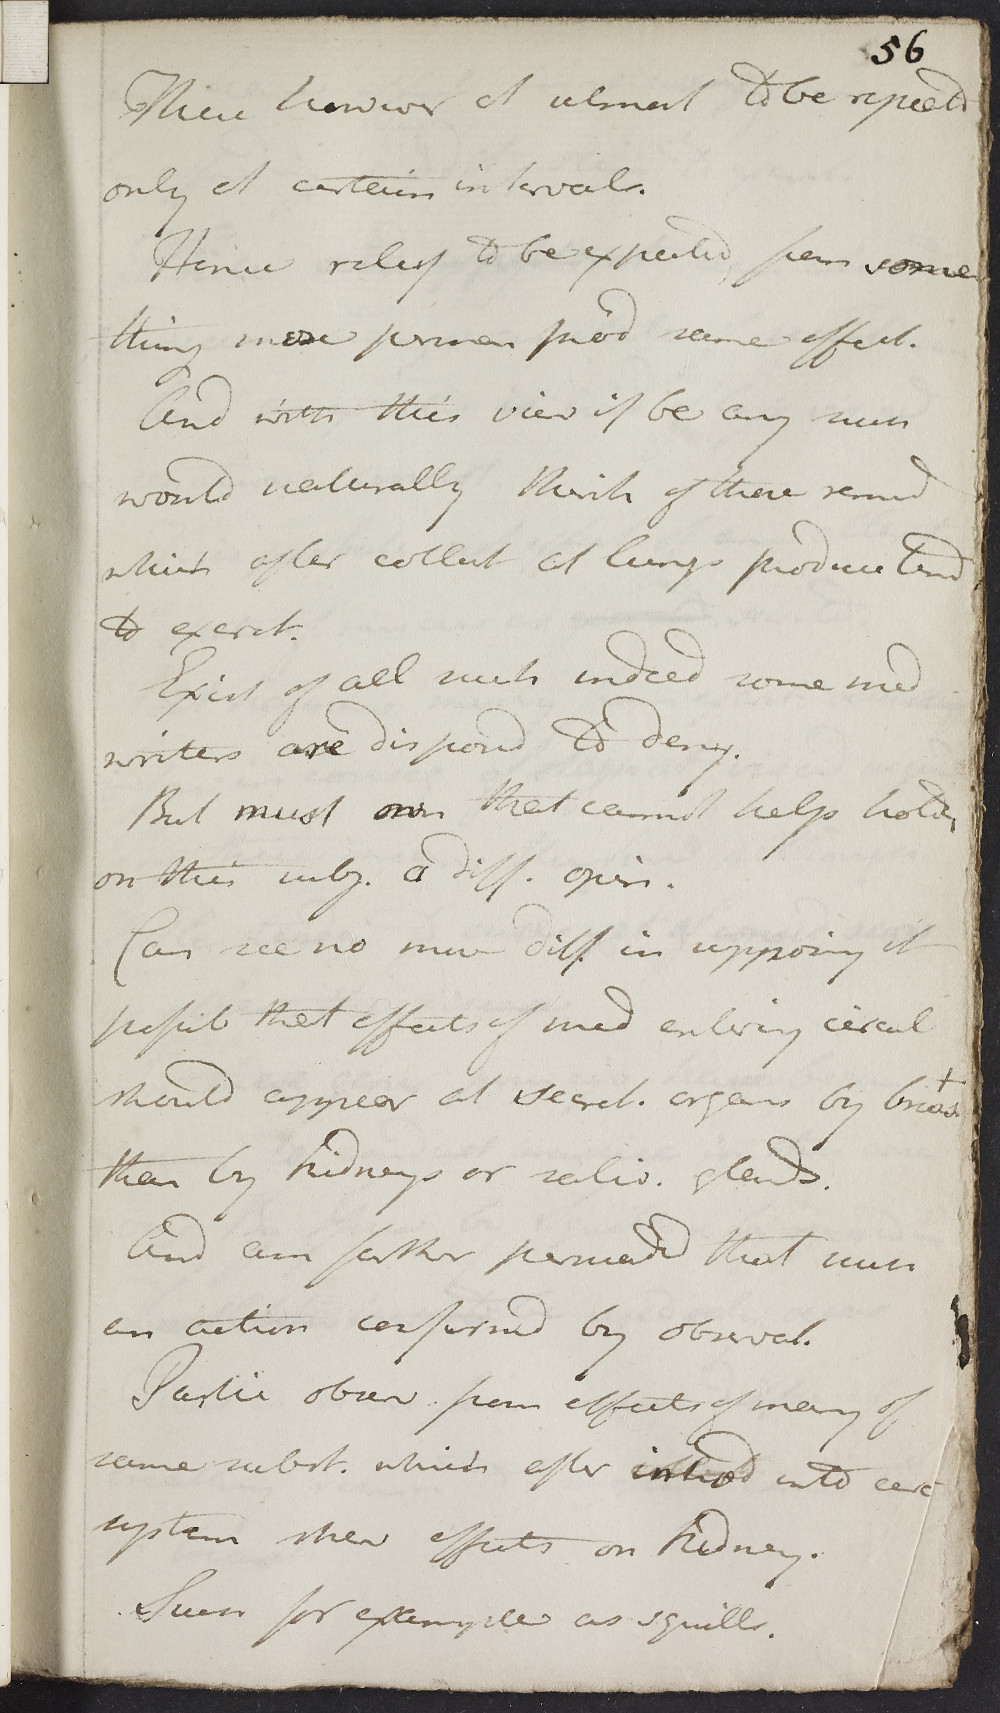 56
These however at utmost to be repeatd
only at certain intervals.
Hence relief to be expected from some
thing more perman prod same effect.
And with this view if be any such
would naturally think of those remed
which after collect at lungs produce tend
to excret.
Exist of all such indeed some med
writers are disposd to deny.
But must own that cannot help hold
on this subj. a diff. opin.
Can see no more diff. in supposing it
possib that effects of med entering circul
should appear at secret. organs by
than by kidneys or saliv. glands.
And am farther persuaded that such
an action confirmd by observat.
Partic observ from effects of many of
same subst. which after introd into circ
system shew effects on kidney.
Such for example as squills.